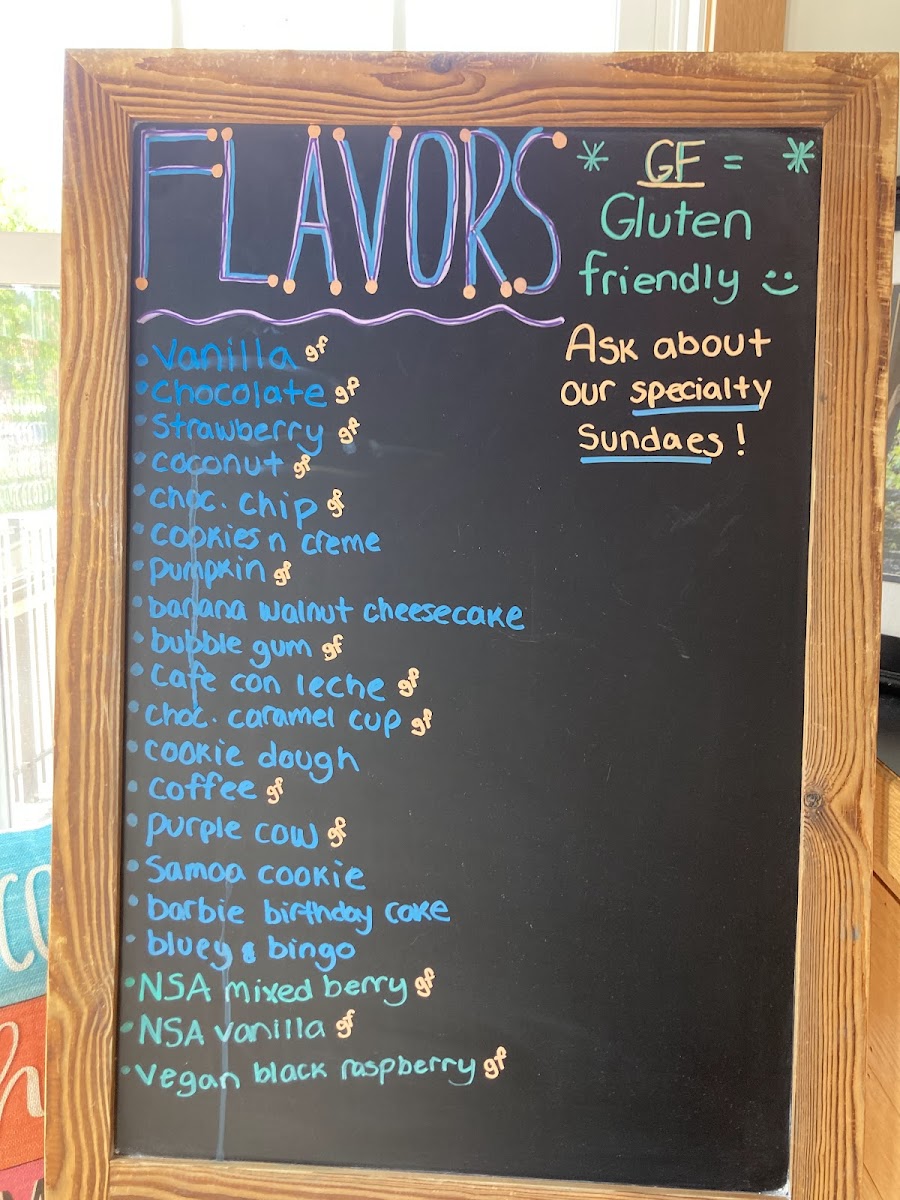 FLAVORS
* GF = *
Gluten
friendly
Ask about
our specialty
Sundaes!
• Vanilla gf
• chocolate gf
• strawberry gf
• coconut gf
• choc. chip gf
• cookies n creme
• pumpkin gf
• banana walnut cheesecake
• bubble gum gf
• Cafe con leche gf
• choc. caramel cup gf
• cookie dough
• coffee gf
• purple cow gf
• Samoa cookie
• barbie birthday cake
• bluey & bingo
• NSA mixed berry gf
• NSA vanilla gf
• vegan black raspberry gf